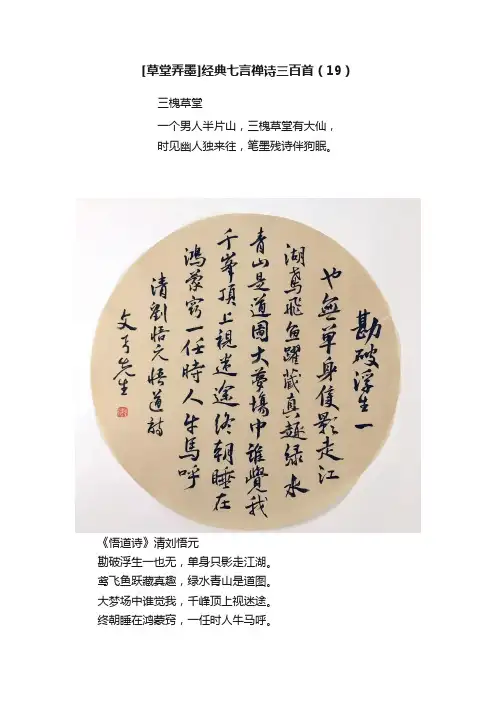 [草堂弄墨]经典七言禅诗三百首（19）
三槐草堂
一个男人半片山，三槐草堂有大仙，
时见幽人独来往，笔墨残诗伴狗眠。
勘破浮生一
也無單身隻影走江
湖鳶飛魚躍藏真趣綠水
青山是道圖大夢場中誰覺我
千峯頂上視迷途終朝睡在
鴻蒙竅一任時人牛馬呼
清劉悟元悟道詩
先生
《悟道诗》清刘悟元
勘破浮生一也无，单身只影走江湖。
鸢飞鱼跃藏真趣，绿水青山是道图。
大梦场中谁觉我，千峰顶上视迷途。
终朝睡在鸿蒙窍，一任时人牛马呼。